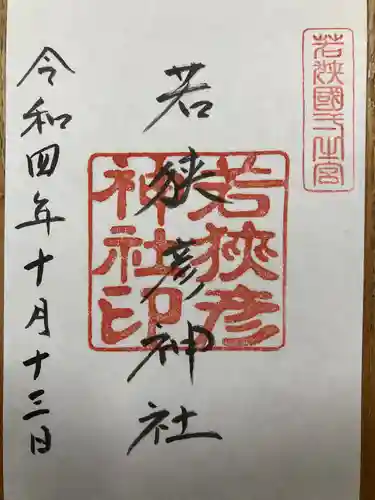 若狭國一之宮
若狭彦神社
若狹彦
神社印
令和四年十月十三日